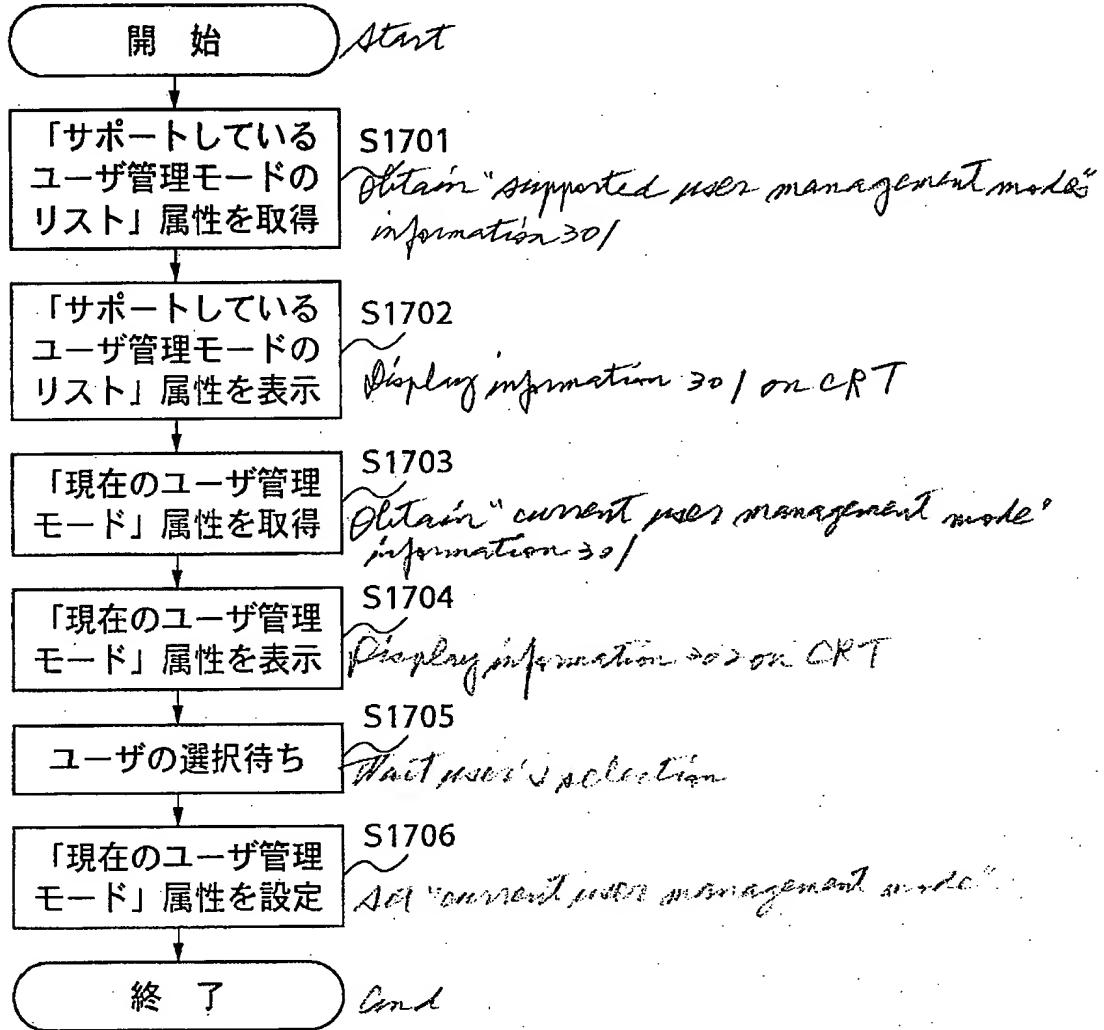 開 始
Start
「サポートしている
ユーザ管理モードの
リスト」属性を取得
S1701
Obtain "supported user management modes"
information 301
「サポートしている
ユーザ管理モードの
リスト」属性を表示
S1702
Display information 301 on CRT
「現在のユーザ管理
モード」属性を取得
S1703
Obtain "current user management mode"
information 301
「現在のユーザ管理
モード」属性を表示
S1704
Display information 302 on CRT
ユーザの選択待ち
S1705
Wait user's selection
「現在のユーザ管理
モード」属性を設定
S1706
Set "current user management mode".
終 了
End